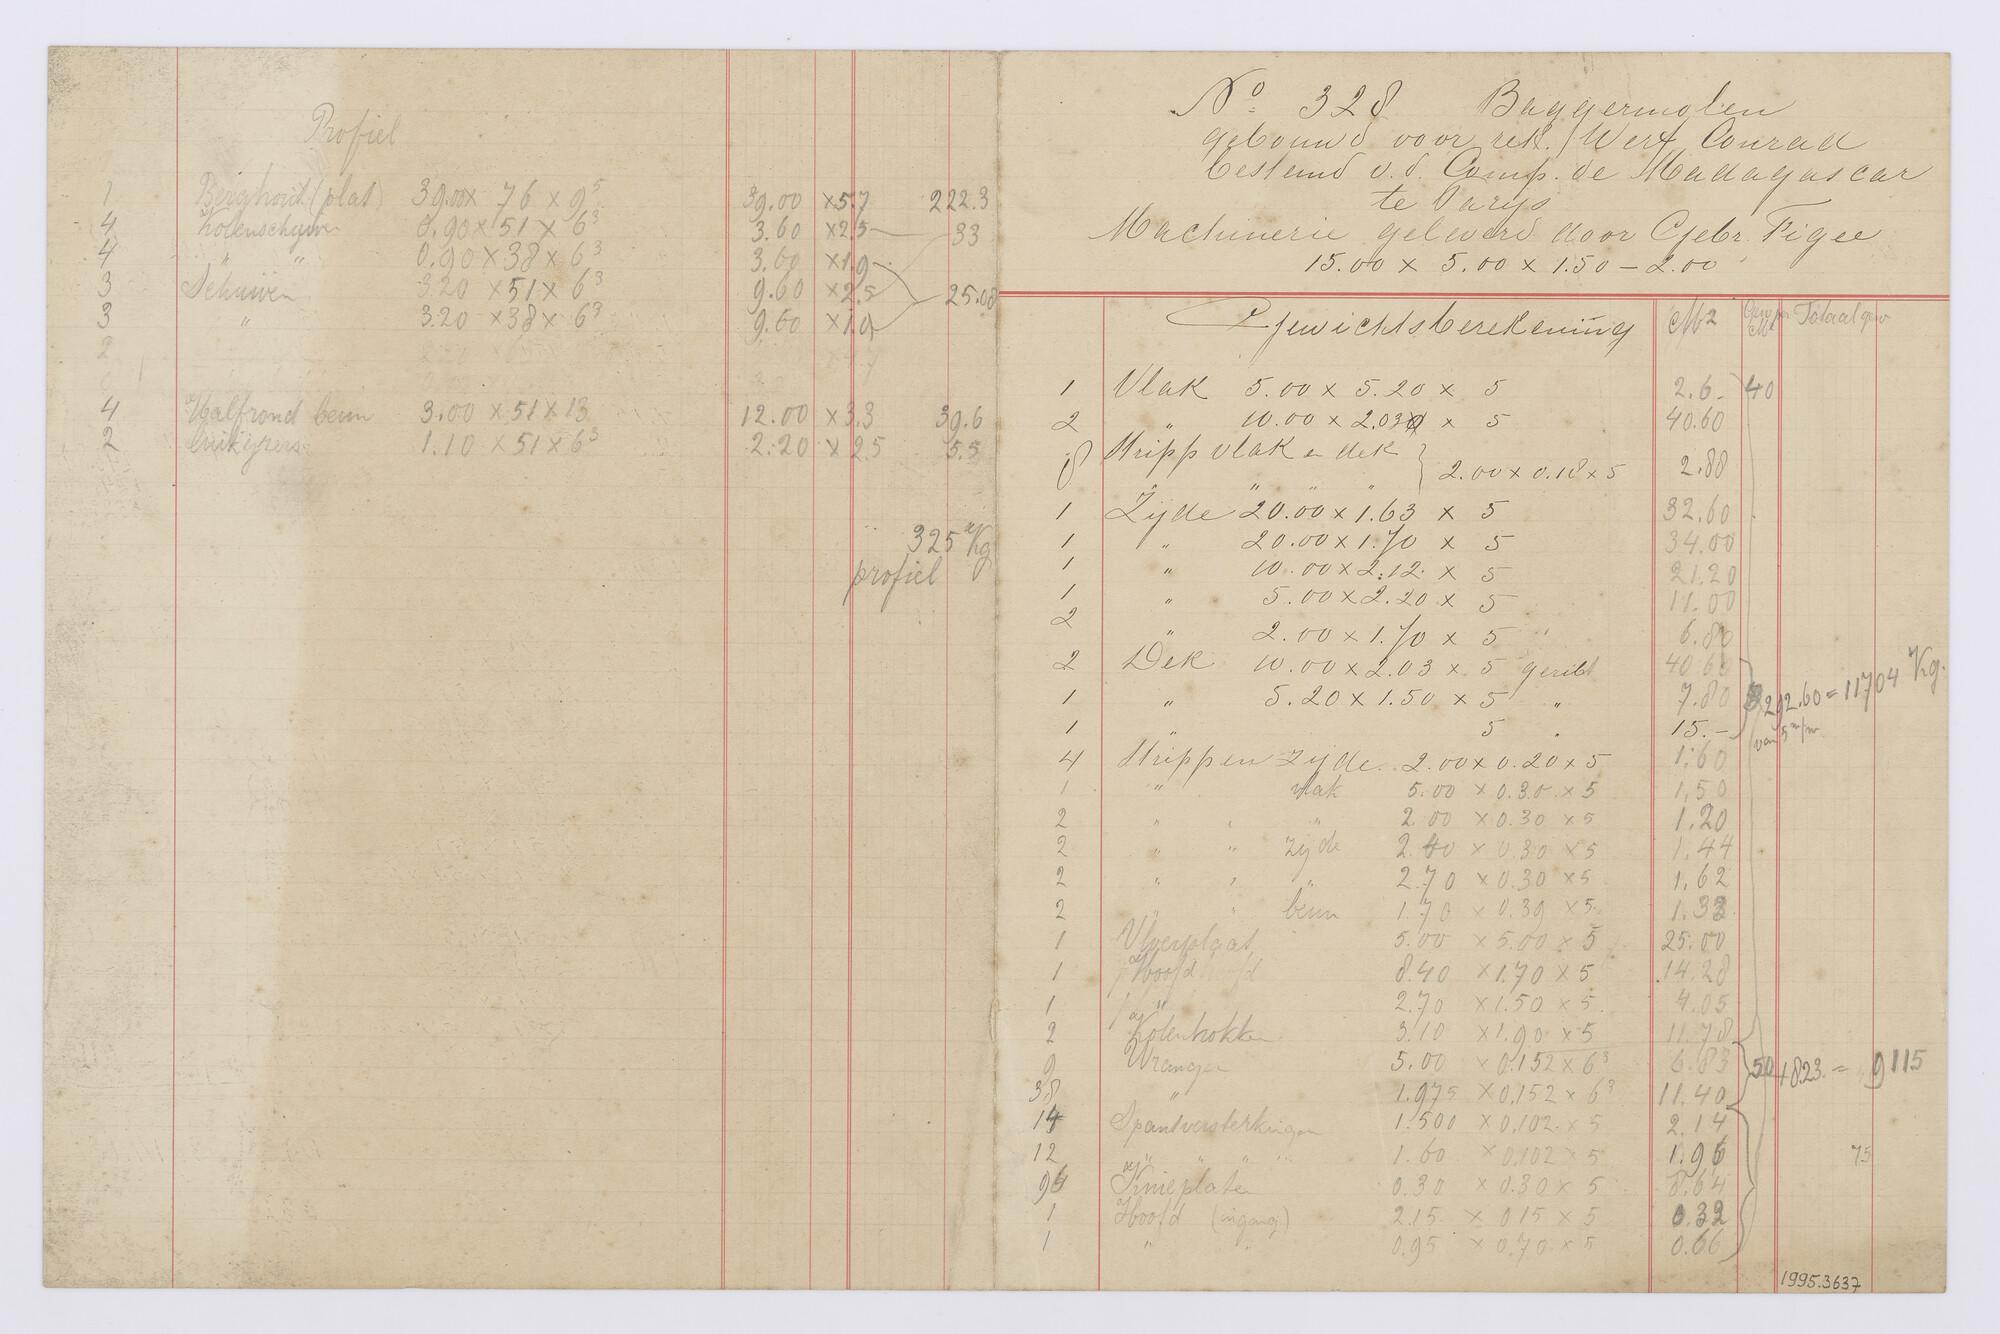 Profiel
1 Berghout (plat) 39.00 x 76 x 9⁵ 39.00 x 5.7 222.3
4 Kolenschuiven 0.90 x 51 x 6³ 3.60 x 2.5 33
4 " " 0.90 x 38 x 6³ 3.60 x 1.9
3 Schuiven 3.20 x 51 x 6³ 9.60 x 2.5 25.08
3 " 3.20 x 38 x 6³ 9.60 x 1.9
2
4 Halfrond beun 3.00 x 51 x 13 12.00 x 3.3 39.6
2 1.10 x 51 x 6³ 2.20 x 2.5 5.5
325 Kg
profiel
No 328 Baggermolen
gebouwd voor rek. Werf Conrad
bestemd v.d. Comp. de Madagascar
te Parys
Machinerie geleverd door Gebr. Figee
15.00 x 5.00 x 1.50 – 2.00
Gewichtsberekening M2 Totaal gew
1 Vlak 5.00 x 5.20 x 5 2.6.- 40
2 " 10.00 x 2.03 x 5 40.60
8 Stripp vlak en dek } 2.00 x 0.18 x 5 2.88
" " "
1 Zijde 20.00 x 1.63 x 5 32.60
1 " 20.00 x 1.70 x 5 34.00
1 " 10.00 x 2.12 x 5 21.20
1 " 5.00 x 2.20 x 5 11.00
2 " 2.00 x 1.70 x 5 " 6.80
2 Dek 10.00 x 2.03 x 5 geribt 40.60
1 " 5.20 x 1.50 x 5 " 7.80 292.60 = 11704 Kg.
1 " 5 " 15.- van 5 m/m
4 Strippen zijde 2.00 x 0.20 x 5 1.60
1 " vlak 5.00 x 0.30 x 5 1.50
2 " " " 2.00 x 0.30 x 5 1.20
2 " " zijde 2.40 x 0.30 x 5 1.44
2 " " " 2.70 x 0.30 x 5 1.62
2 " " beun 1.70 x 0.39 x 5 1.33
1 Vloerplaat 5.00 x 5.00 x 5 25.00
1 Hoofd 8.40 x 1.70 x 5 14.28
1 " 2.70 x 1.50 x 5 4.05
2 Kolenhokken 3.10 x 1.90 x 5 11.78
9 Wrangen 5.00 x 0.152 x 6³ 6.83 50 1823. = 9115
38 " 1.975 x 0.152 x 6³ 11.40
14 Spantversterkingen 1.500 x 0.102 x 5 2.14
12 " " " " 1.60 x 0.102 x 5 1.96 75
96 Knieplaten 0.30 x 0.30 x 5 8.64
1 Hoofd (ingang) 2.15 x 0.15 x 5 0.32
1 " " 0.95 x 0.70 x 5 0.66
1995.3637